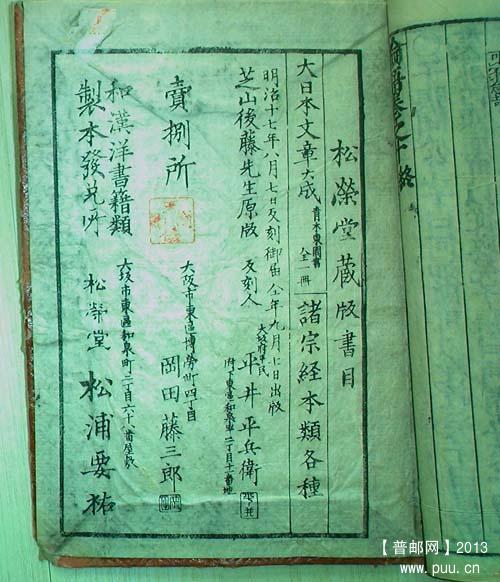 松榮堂蔵版書目
大日本文章大成 青木東園書 全一冊
諸宗経本類各種
明治十七年八月七日反刻御届 仝年九月七日出版
芝山後藤先生原版 反刻人
大坂府平民
平井平兵衛
府下東區和泉町二丁目十一番地
賣捌所
大阪市東區博勞町四丁目
岡田藤三郎
和漢洋書籍類
製本發兌所
大坂市東區和泉町二丁目六十番屋敷
松榮堂 松浦要祐
【普邮网】2013
www.puu.cn